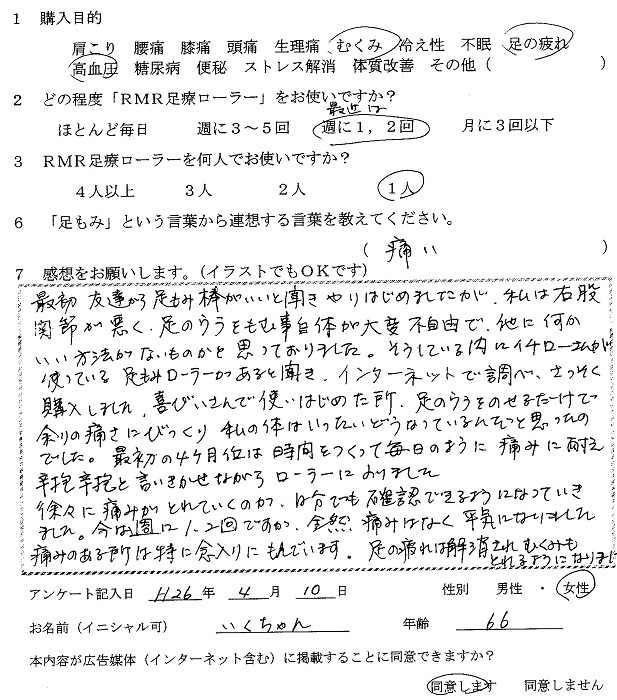 1 購入目的
肩こり 腰痛 膝痛 頭痛 生理痛 むくみ 冷え性 不眠 足の疲れ
高血圧 糖尿病 便秘 ストレス解消 体質改善 その他 ( )
2 どの程度「RMR足療ローラー」をお使いですか?
最近は
ほとんど毎日 週に3~5回 週に1,2回 月に3回以下
3 RMR足療ローラーを何人でお使いですか?
4人以上 3人 2人 1人
6 「足もみ」という言葉から連想する言葉を教えてください。
( 痛い )
7 感想をお願いします。(イラストでもOKです)
最初 友達から足もみ棒がいいと聞きやりはじめましたが、私は右股
関節が悪く、足のうらをもむ事自体が大変不自由で、他に何か
いい方法がないものかと思っておりました。そうしている内にイチローさんが
使っている足もみローラーがあると聞き、インターネットで調べ、さっそく
購入しました。喜びいさんで使いはじめた所、足のうらをのせるだけで
余りの痛さにびっくり 私の体はいったいどうなっているんだろと思ったの
でした。最初の4ヶ月位は時間をつくって毎日のように痛みに耐え
辛抱辛抱と言いきかせながらローラーにのりました
徐々に痛みがとれていくのが、自分でも確認できるようになっていき
ました。今は週に1.2回ですが、全然痛みはなく平気になりました
痛みのある所は特に念入りにもんでいます。足の疲れは解消されむくみも
とれるようになりました
アンケート記入日 H26 年 4 月 10 日 性別 男性 ・ 女性
お名前(イニシャル可) いくちゃん 年齢 66
本内容が広告媒体(インターネット含む)に掲載することに同意できますか?
同意します 同意しません